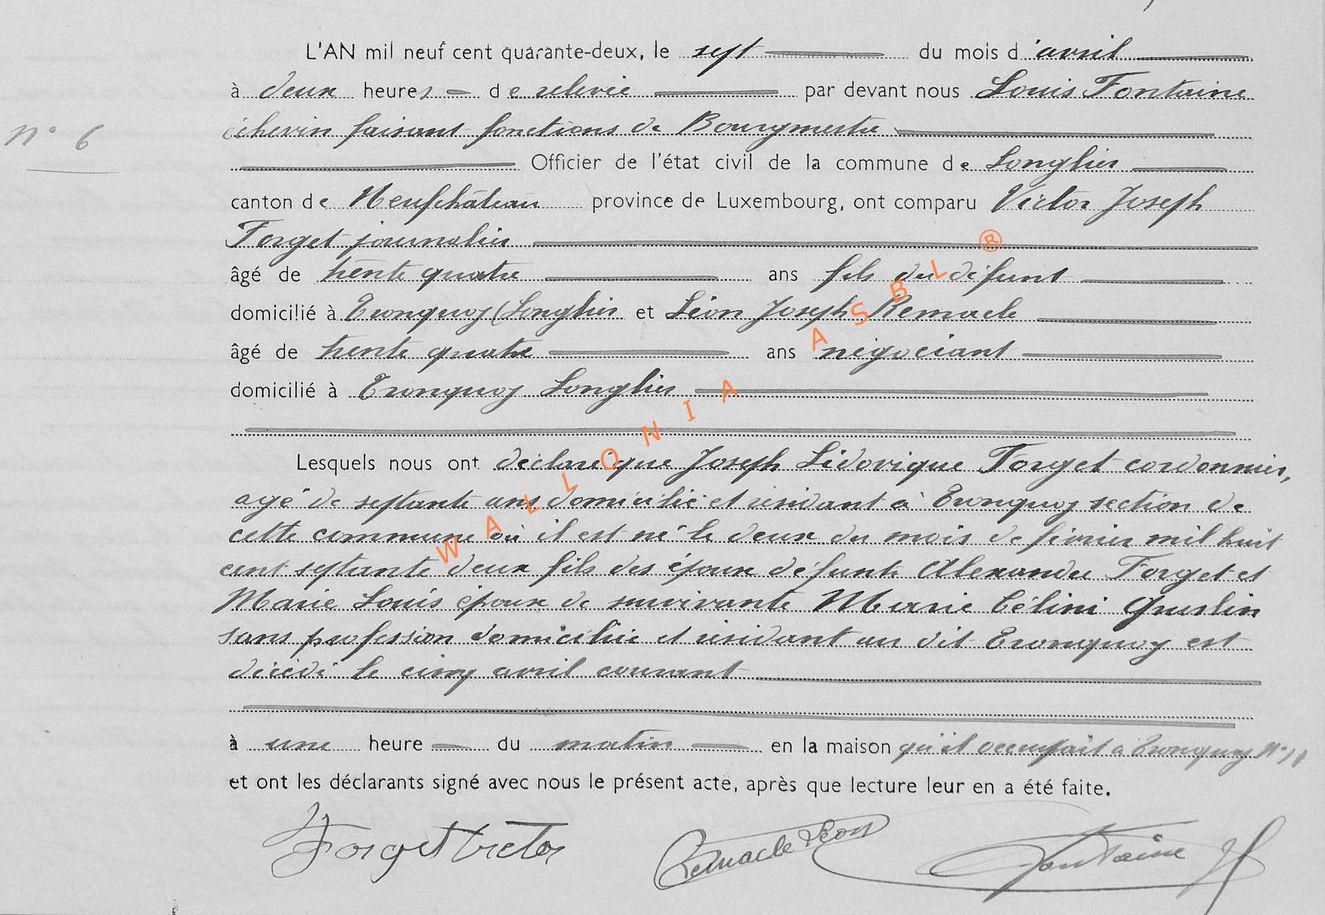 L'AN mil neuf cent quarante-deux, le sept du mois d'avril
à deux heures de relevée par devant nous Louis Fontaine
N° 6
échevin faisant fonctions de Bourgmestre
Officier de l'état civil de la commune de Longlier
canton de Neufchâteau province de Luxembourg, ont comparu Victor Joseph
Forget journalier
âgé de trente quatre ans fils du défunt
domicilié à Tronquoy (Longlier et Léon Joseph Remacle
âgé de trente quatre ans négociant
domicilié à Tronquoy Longlier
Lesquels nous ont déclaré que Joseph Lédovique Forget cordonnier,
agé de septante ans domicilié et résidant à Tronquoy section de
cette commune où il est né le deux du mois de février mil huit
cent septante deux fils des époux défunts Alexandre Forget et
Marie Louis époux de survivante Marie Célini
sans profession domiciliée et résidant au dit Tronquoy est
décédé le cinq avril courant
à une heure du matin en la maison qu'il occupait à Tronquoy N°
et ont les déclarants signé avec nous le présent acte, après que lecture leur en a été faite.
Forget Victor Remacle Léon Fontaine
WALLONIA ASBL ®